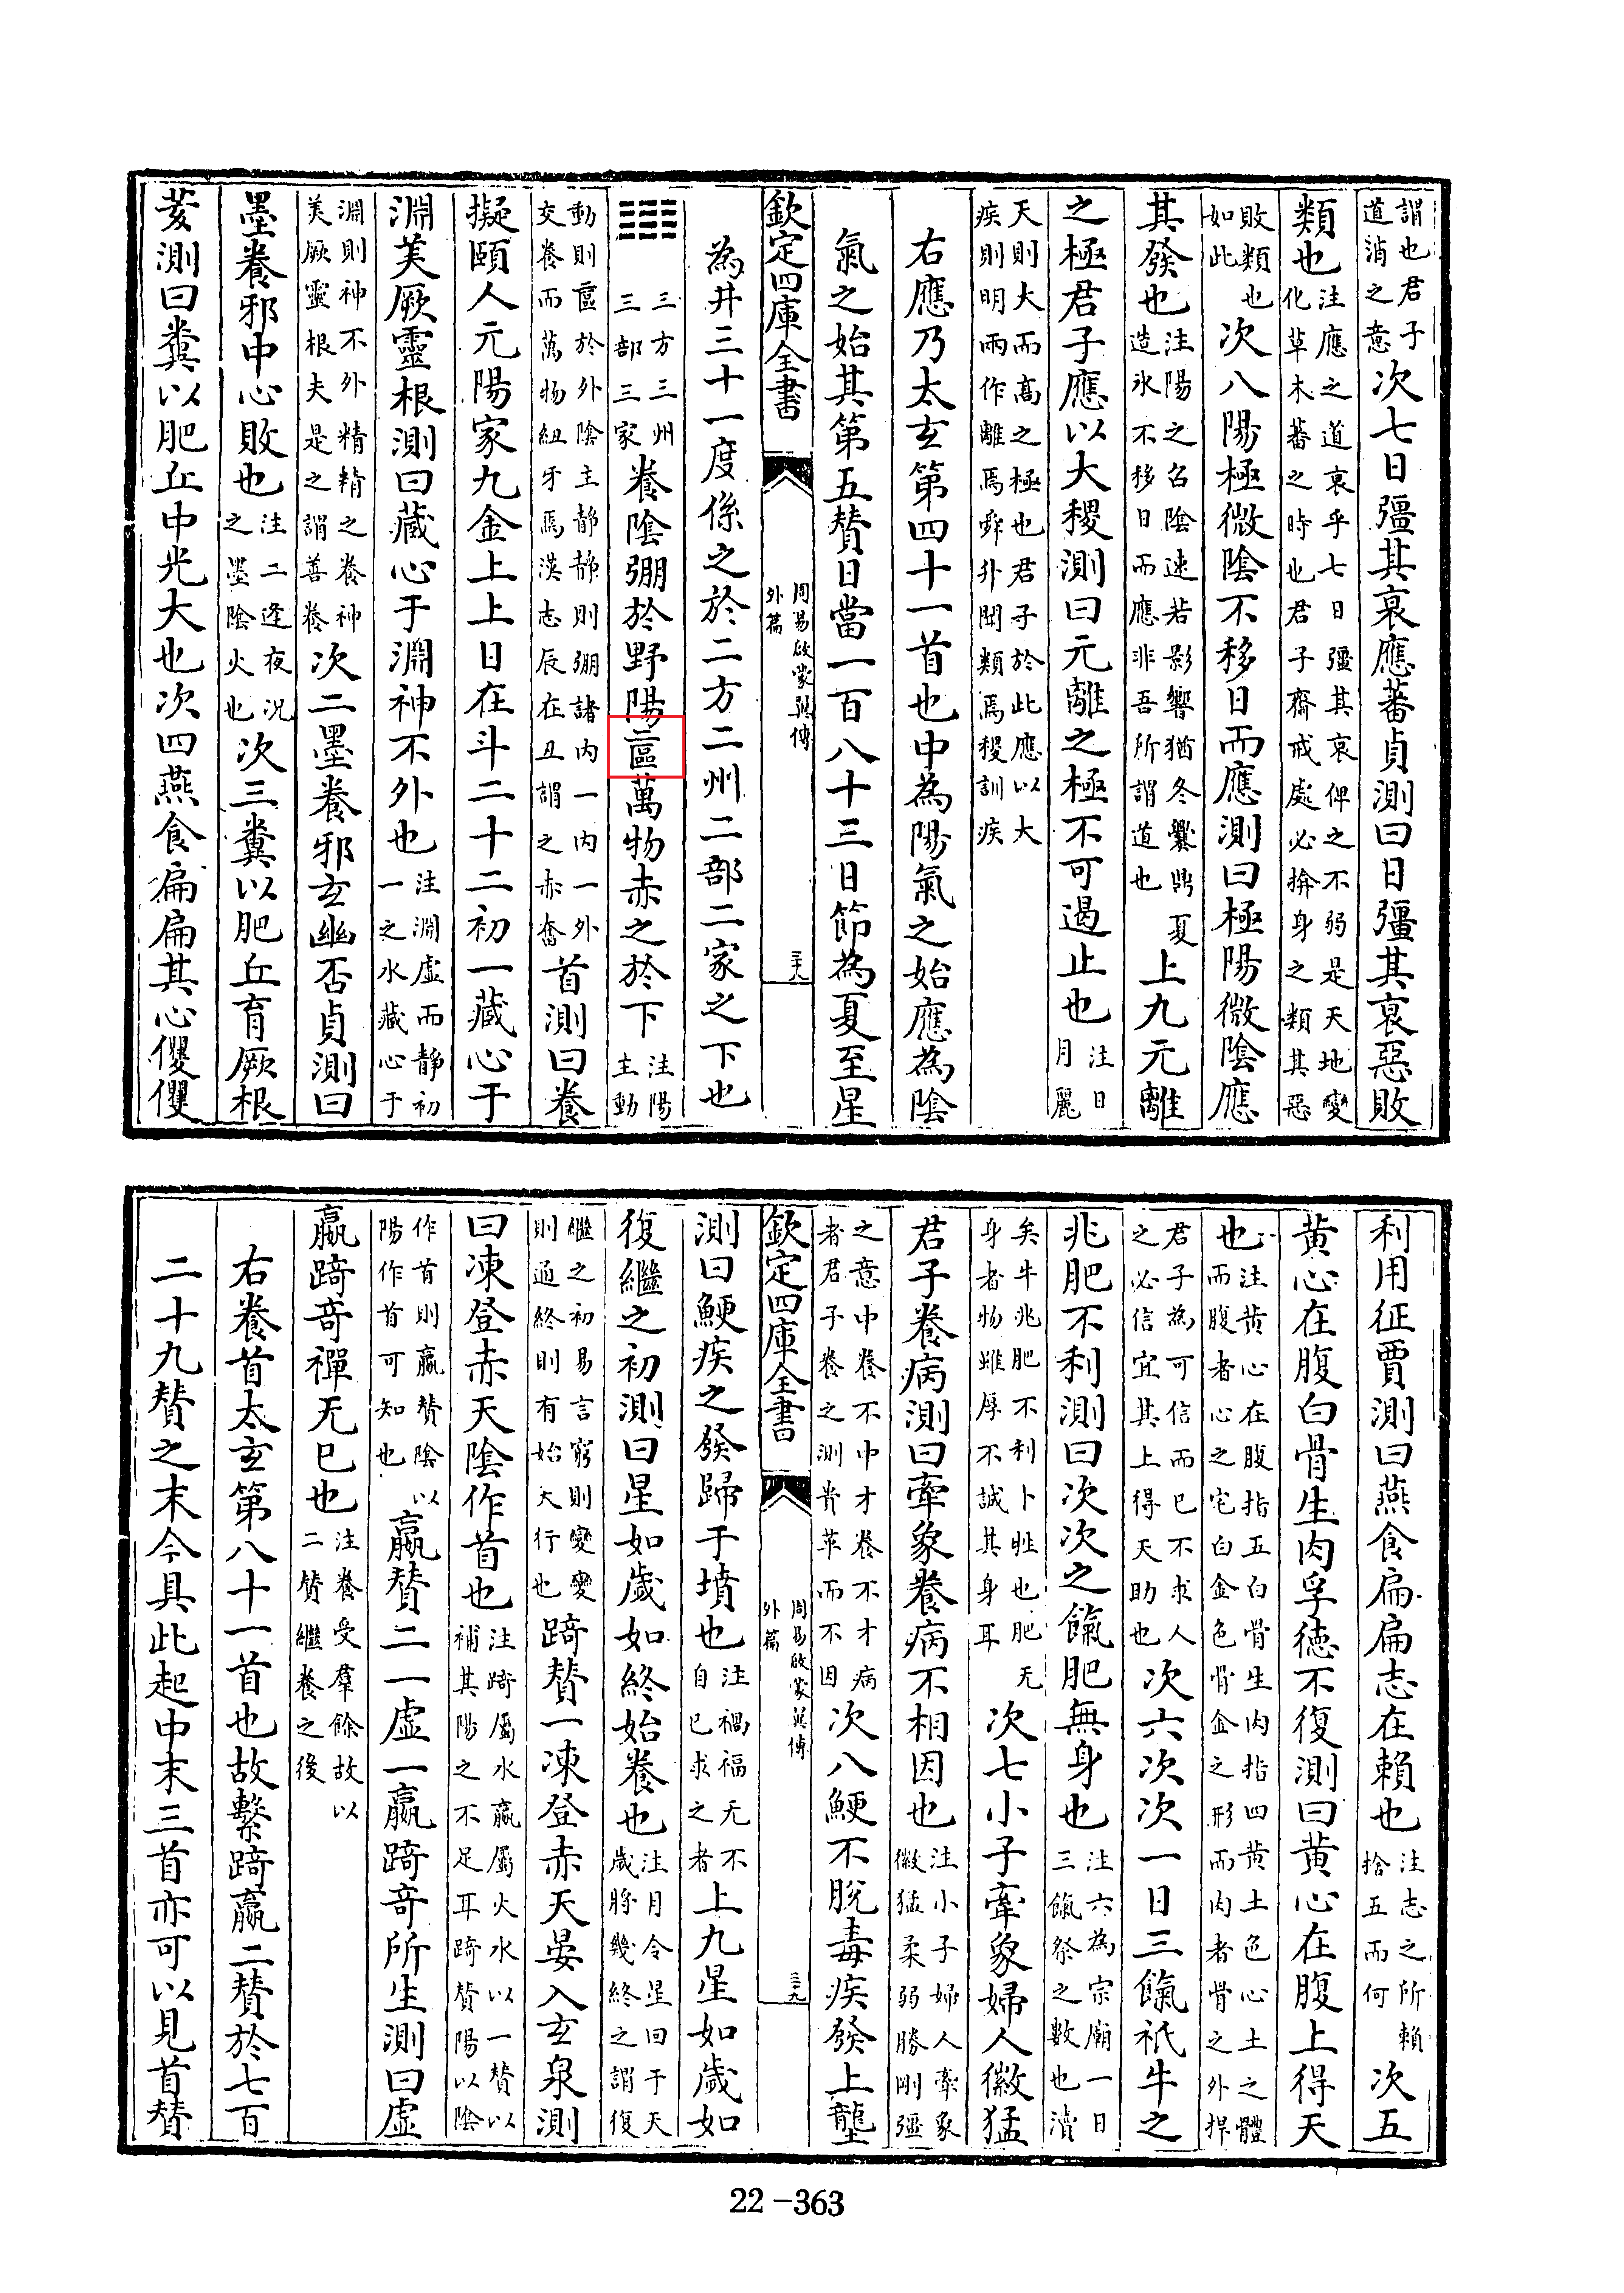 謂也君子道消之意次七日彊其哀應蕃貞測曰日彊其哀惡敗
類也注應之道哀乎七日彊其哀俾之不弱是天地變化草木蕃之時也君子齋戒處必揜身之類其惡
敗類也如此次八陽極微陰不移日而應測曰極陽微陰應
其發也注陽之召陰速若影響猶冬爨鼎夏造氷不移日而應非吾所謂道也上九元離
之極君子應以大稷測曰元離之極不可遏止也注日月麗
天則大而高之極也君子於此應以大疾則明兩作離焉舜升聞類焉稷訓疾
右應乃太玄第四十一首也中為陽氣之始應為陰
氣之始其第五賛日當一百八十三日節為夏至星
欽定四庫全書
周易啟蒙翼傳外篇
三十八
為井三十一度係之於二方二州二部二家之下也
三方三州三部三家養陰弸於野陽蓲萬物赤之於下注陽主動
動則蓲於外陰主靜靜則弸諸内一内一外交養而萬物紐牙焉漢志辰在丑謂之赤奮首測曰養
擬頤人元陽家九金上上日在斗二十二初一藏心于
淵美厥靈根測曰藏心于淵神不外也注淵虛而靜初一之水藏心于
淵則神不外精精之養神美厥靈根夫是之謂善養次二墨養邪玄幽否貞測曰
墨養邪中心敗也注二逢夜況之墨陰火也次三糞以肥丘育厥根
荄測曰糞以肥丘中光大也次四燕食扁扁其心㦜㦜
利用征賈測曰燕食扁扁志在賴也注志之所賴捨五而何次五
黄心在腹白骨生肉孚德不復測曰黄心在腹上得天
也注黄心在腹指五白骨生肉指四黄土色心土之體而腹者心之宅白金色骨金之形而肉者骨之外捍
君子為可信而已不求人之必信宜其上得天助也次六次次一日三餼祇牛之
兆肥不利測曰次次之餼肥無身也注六為宗廟一日三餼祭之數也瀆
矣牛兆肥不利卜牲也肥无身者物雖厚不誠其身耳次七小子牽象婦人徽猛
君子養病測曰牽象養病不相因也注小子婦人牽象徽猛柔弱勝剛彊
之意中養不中才養不才病者君子養之測貴革而不因次八鯁不脫毒疾發上壟
欽定四庫全書
周易啟蒙翼傳外篇
三十九
測曰鯁疾之發歸于墳也注禍福无不自已求之者上九星如歲如
復繼之初測曰星如歲如終始養也注月令星回于天歲將幾終之謂復
繼之初易言窮則變變則通終則有始大行也踦賛一凍登赤天晏入玄泉測
曰凍登赤天陰作首也注踦屬水嬴屬火水以一賛以補其陽之不足耳踦賛陽以陰
作首則嬴賛陰以陽作首可知也嬴賛二一虛一嬴踦竒所生測曰虛
嬴踦竒禪无已也注養受羣餘故以二賛繼養之後
右養首太玄第八十一首也故繫踦嬴二賛於七百
二十九賛之末今具此起中末三首亦可以見首賛
22-363